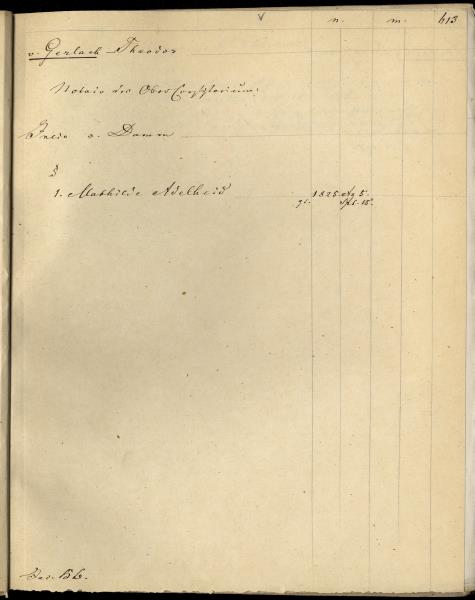 n. m. 613
v. Gerlach Theodor
Notair des Ober Consistorium.
Julie v. Damm
§
1. Mathilde Adelheid 1825. Ag 5.
gt. Spt. 18.